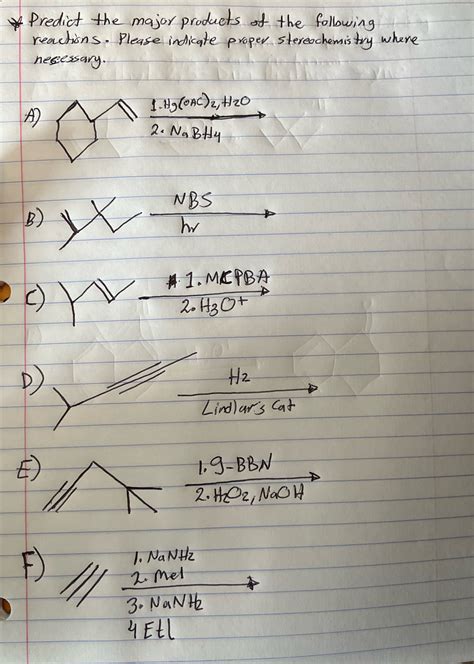 * Predict the major products of the following
reactions. Please indicate proper stereochemistry where
necessary.
A)
1. Hg(OAC)2, H2O
2. NaBH4
B)
NBS
hv
C)
1. MCPBA
2. H3O+
D)
H2
Lindlar's Cat
E)
1. 9-BBN
2. H2O2, NaOH
F)
1. NaNH2
2. MeI
3. NaNH2
4 EtI